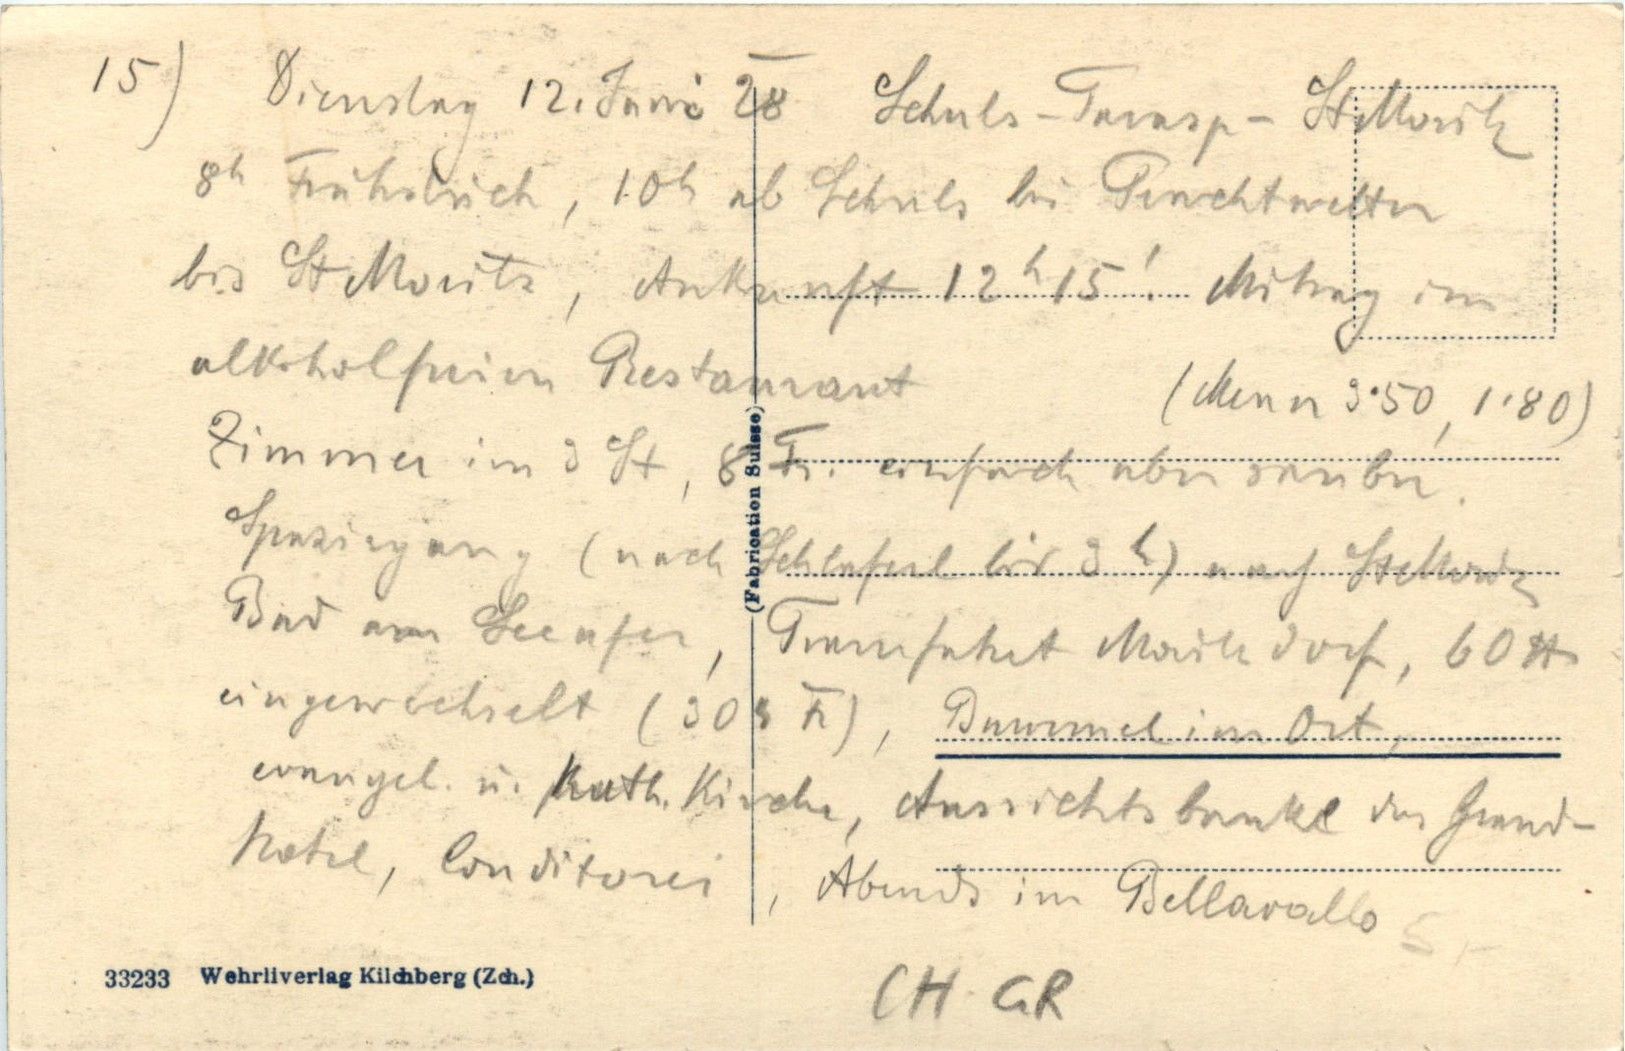 15) Dienstag 12. Juni 28 Schuls-Tarasp - St Moritz
8h Frühstück, 10h ab Schuls bei Prachtwetter
bis St Moritz, Ankunft 12h 15'. Mittag im
alkoholfreien Restaurant (Menu 3·50, 1·80)
Zimmer im 3 St, 8 Fr. einfach aber sauber.
Spaziergang (nach Schlaferl bis 3h) nach St Moritz
Bad am Seeufer, Tramfahrt Moritz dorf, 60
eingewechselt (30 Fr), Bummel im Ort,
evangel. u. Kath. Kirche, Aussichtsbankl des Grand-
hotel, Conditorei, Abends im Bellavallo
(Fabrication Suisse)
33233 Wehrliverlag Kilchberg (Zch.)
CH GR